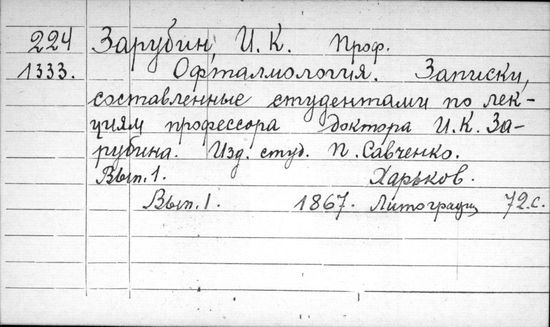 224 Зарубин, И. К. Проф.
1333. Офталмология. Записки,
составленные студентами по лек-
циям профессора доктора И. К. За-
рубина. Изд. студ. П. Савченко.
Вып. 1. Харьков.
Вып. 1. 1867. Литография 72 с.